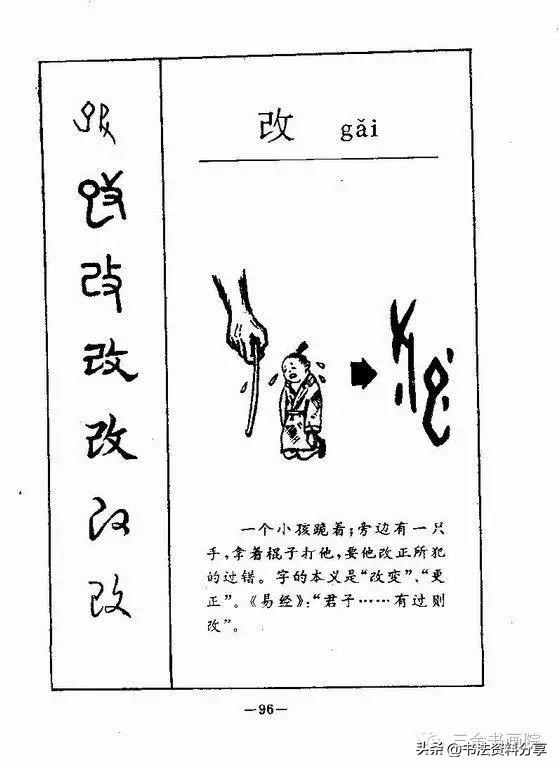 改 gǎi
改
改
改
改
改
一个小孩跪着；旁边有一只
手，拿着棍子打他，要他改正所犯
的过错。字的本义是“改变”、“更
正”。《易经》：“君子……有过则
改”。
—96—
三余书画院
头条 @书法资料分享